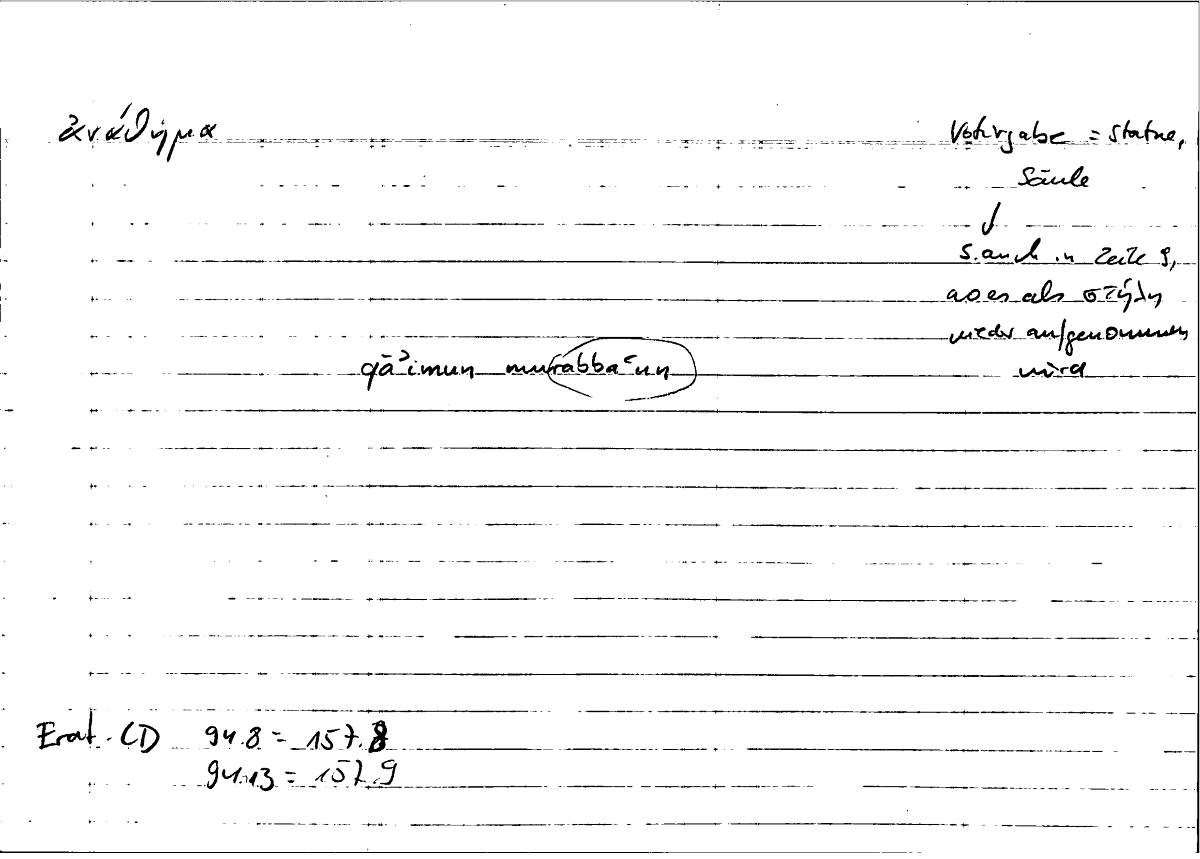 ἀνάθημα
Votivgabe = Statue,
Säule
↓
s. auch in Zeile 9,
wo es als στήλη
wieder aufgenommen
wird
qāʾimun murabbaʿun
Erat. CD 94.8 = 157.8
94.13 = 157.9